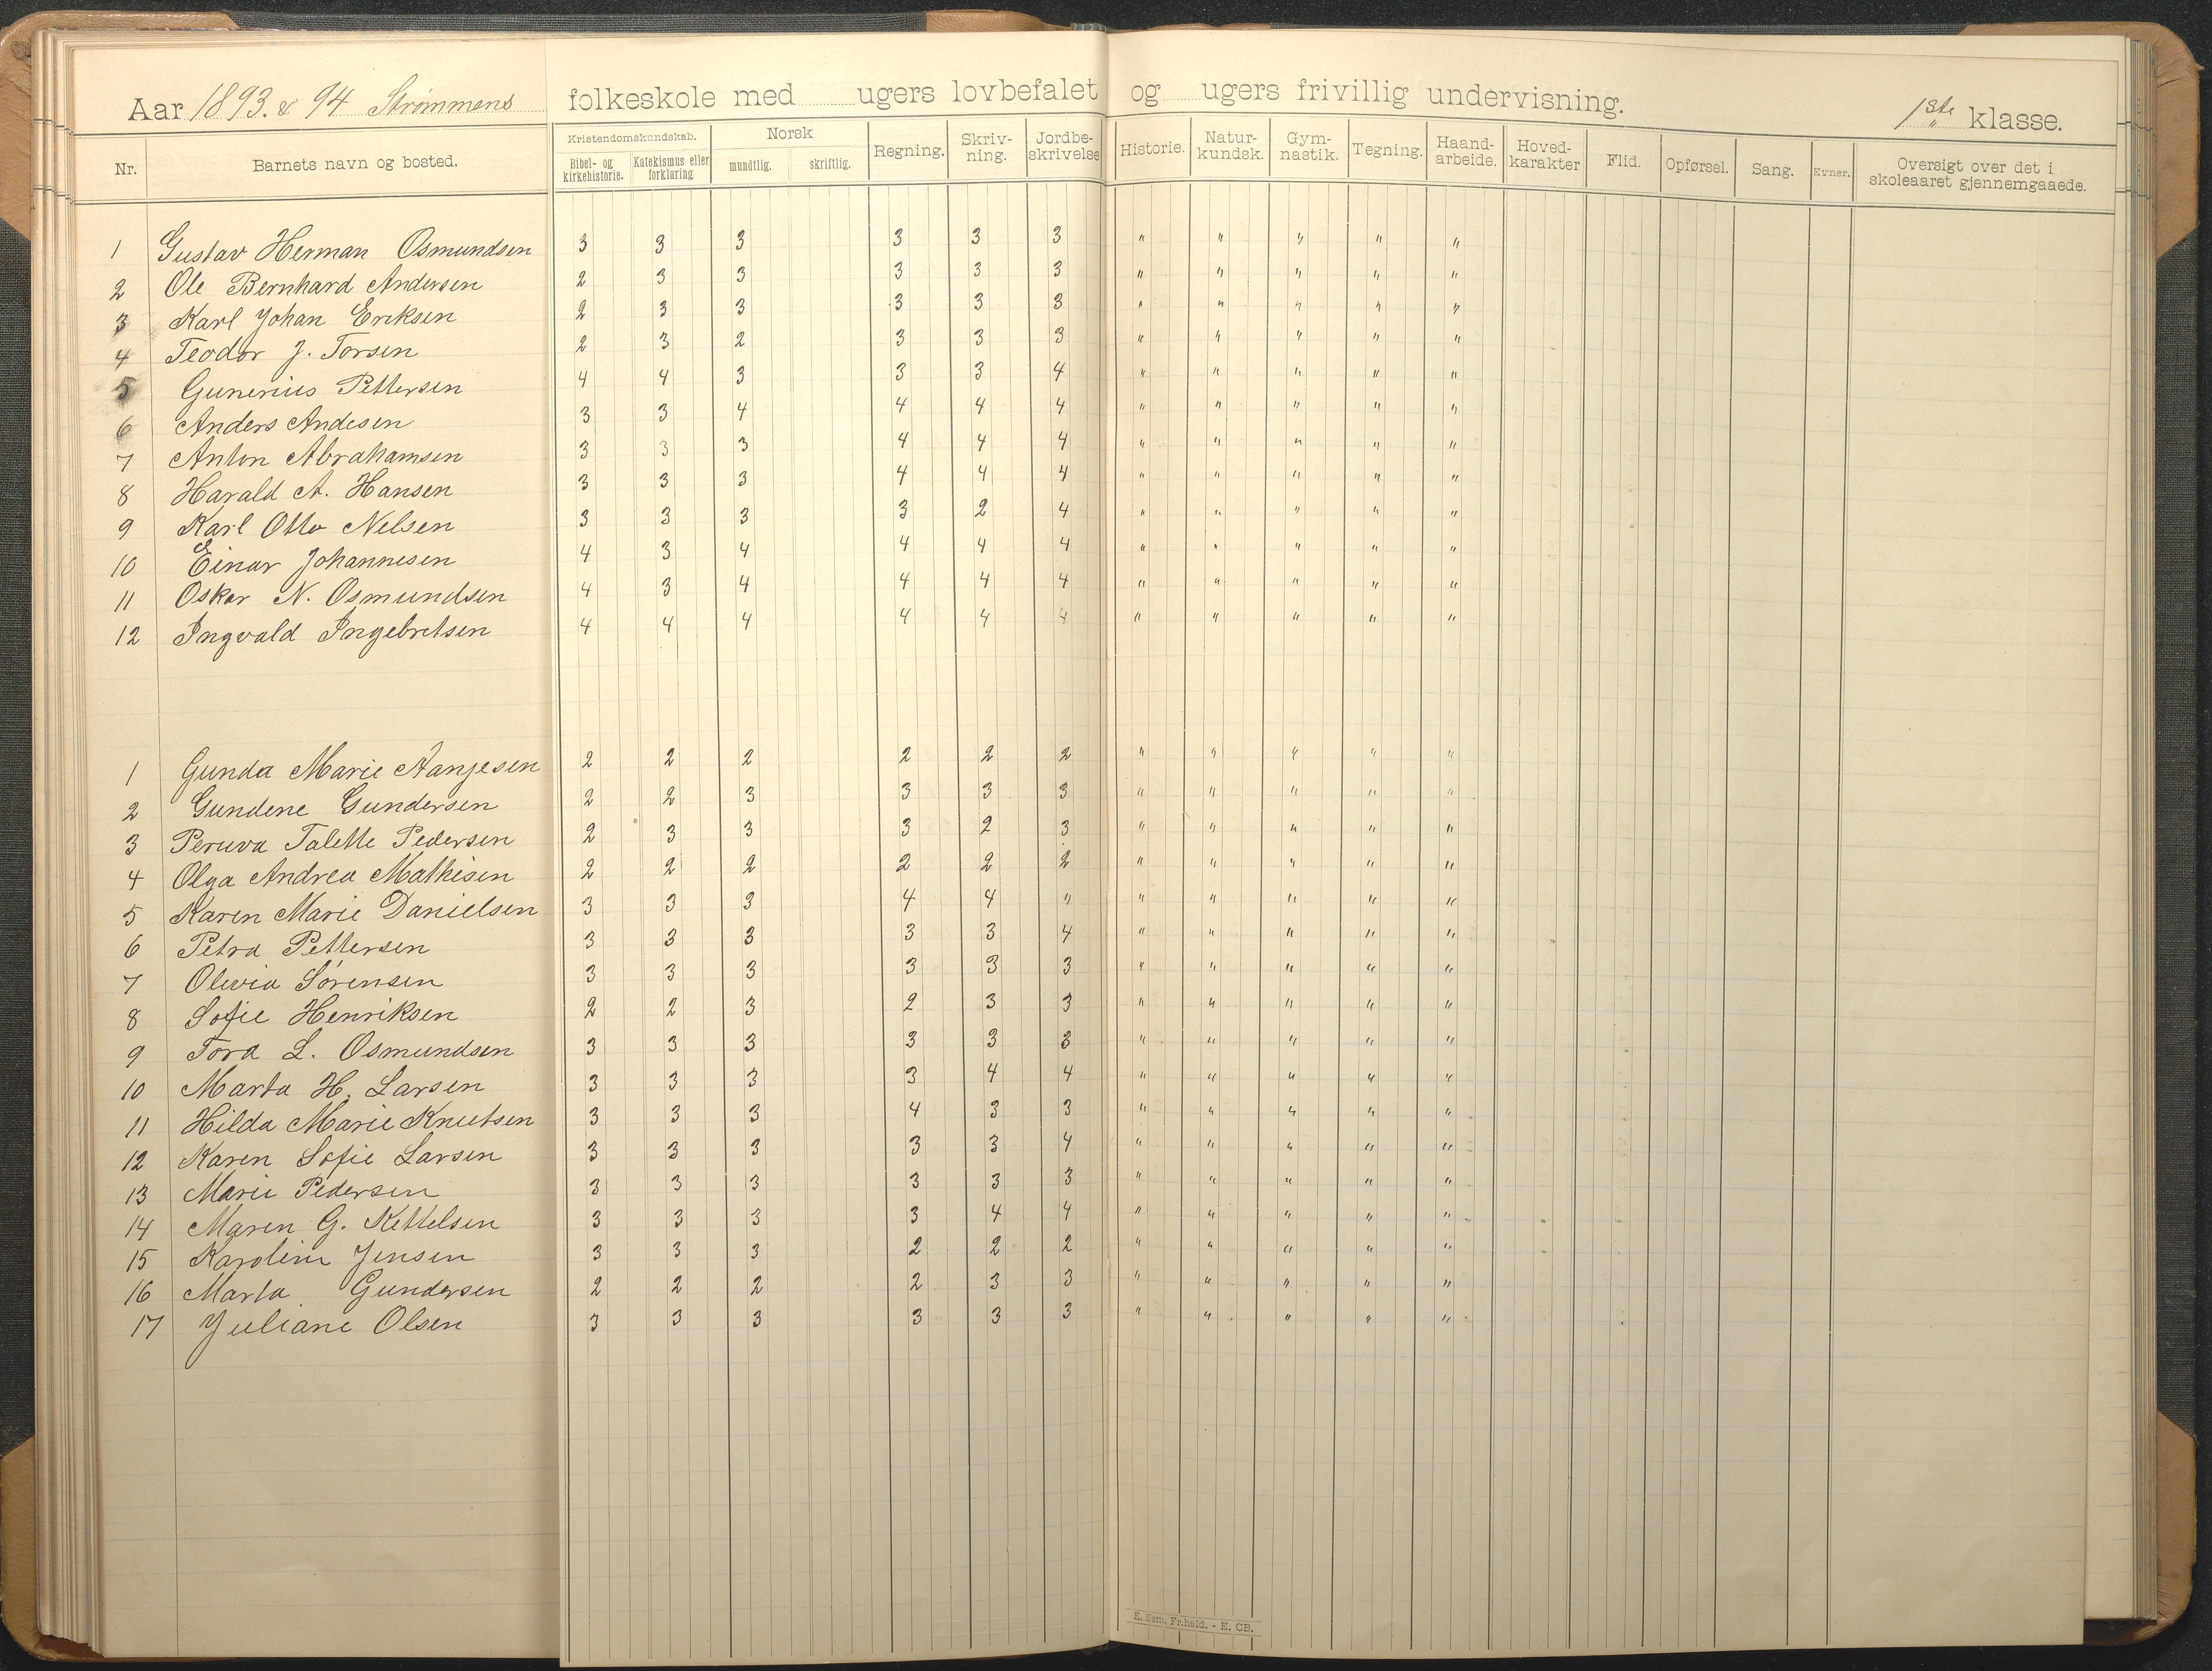 Aar 1893. & 94 Strømmens folkeskole med ugers lovbefalet og ugers frivillig undervisning. 1ste klasse.
Nr. Barnets navn og bosted. Kristendomskundskab. Bibel- og kirkehistorie. Katekismus eller forklaring Norsk mundtlig. skriftlig. Regning. Skriv-ning. Jordbe-skrivelse Historie. Natur-kundsk. Gym-nastik. Tegning. Haand-arbeide. Hoved-karakter Flid. Opførsel. Sang. Evner. Oversigt over det i skoleaaret gjennemgaaede.
1 Gustav Herman Osmundsen 3 3 3 3 3 3 " " " " "
2 Ole Bernhard Andersen 2 3 3 3 3 3 " " " " "
3 Karl Johan Eriksen 2 3 3 3 3 3 " " " " "
4 Teodor J. Torsen 2 3 2 3 3 3 " " " " "
5 Gunerius Pettersen 4 4 3 3 3 4 " " " " "
6 Anders Andesen 3 3 4 4 4 4 " " " " "
7 Anton Abrahamsen 3 3 3 4 4 4 " " " " "
8 Harald A. Hansen 3 3 3 4 4 4 " " " " "
9 Karl Otto Nelsen 3 3 3 3 2 4 " " " " "
10 Einar Johannesen 4 3 4 4 4 4 " " " " "
11 Oskar N. Osmundsen 4 3 4 4 4 4 " " " " "
12 Ingvald Ingebretsen 4 4 4 4 4 4 " " " " "
1 Gunda Marie Aanjesen 2 2 2 2 2 2 " " " " "
2 Gundene Gundersen 2 2 3 3 3 3 " " " " "
3 Peruva Talette Pedersen 2 3 3 3 2 3 " " " " "
4 Olga Andrea Mathisen 2 2 2 2 2 2 " " " " "
5 Karen Marie Danielsen 3 3 3 4 4 " " " " " "
6 Petra Pettersen 3 3 3 3 3 4 " " " " "
7 Olevia Sørensen 3 3 3 3 3 3 " " " " "
8 Sofie Henriksen 2 2 3 2 3 3 " " " " "
9 Tora L. Osmundsen 3 3 3 3 3 3 " " " " "
10 Marta H. Larsen 3 3 3 3 4 4 " " " " "
11 Hilda Marie Knutsen 3 3 3 4 3 3 " " " " "
12 Karen Sofie Larsen 3 3 3 3 3 4 " " " " "
13 Marie Pedersen 3 3 3 3 3 3 " " " " "
14 Maren G. Kettelsen 3 3 3 3 4 4 " " " " "
15 Karoline Jensen 3 3 3 2 2 2 " " " " "
16 Marta Gundersen 2 2 2 2 3 3 " " " " "
17 Juliane Olsen 3 3 3 3 3 3 " " " " "
E. Sem, Fr.hald. - E. CB.